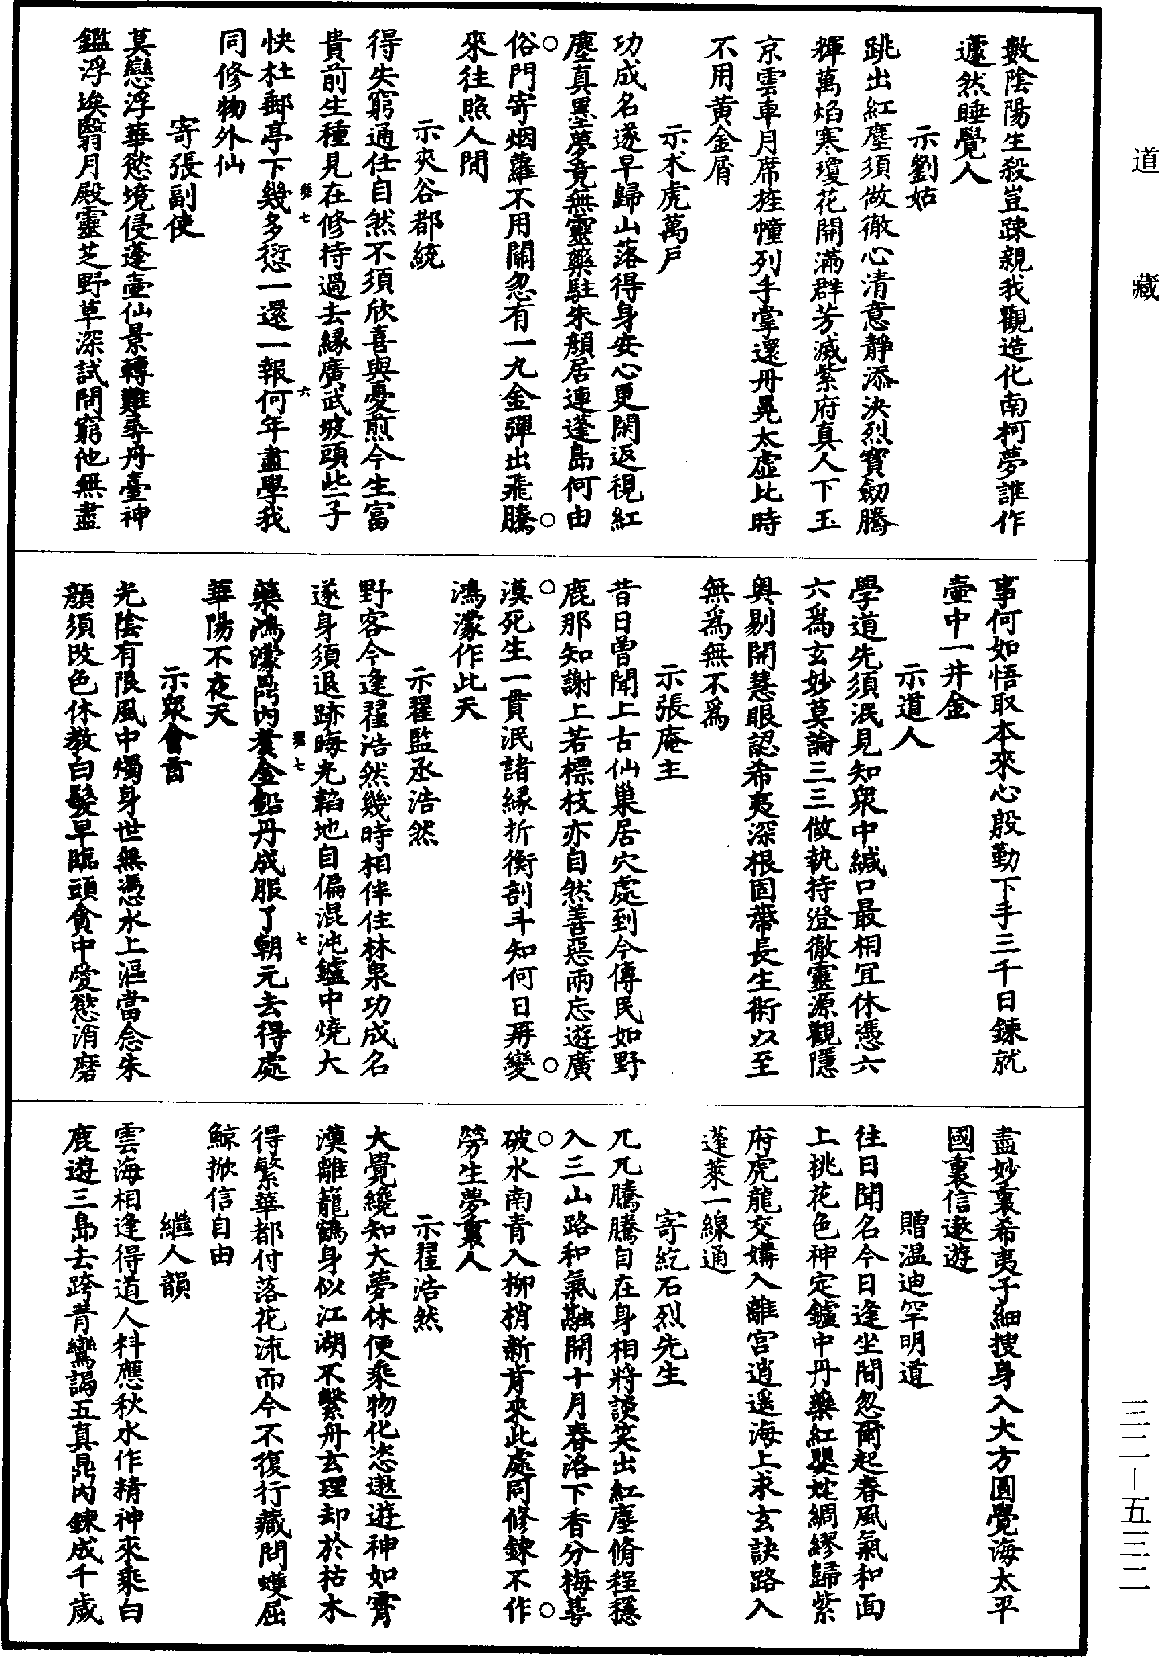 道藏
數陰陽生殺豈疎親我觀造化南柯夢誰作
蘧然睡覺人
示劉姑
跳出紅塵須做徹心清意靜添決烈寶劒騰
輝萬焰寒瓊花開滿群芳滅紫府真人下玉
京雲車月席旌幢列手掌還丹晃太虛比時
不用黃金屑
示朮虎萬戶
功成名遂早歸山落得身安心更閑返視紅
塵真噩夢竟無靈藥駐朱顏居連蓬島何由
俗門寄烟蘿不用關忽有一九金彈出飛騰
來往照人間
示夾谷都統
得失窮通任自然不須欣喜與憂煎今生富
貴前生種見在修持過去緣廣武坡頭些子
快杜郵亭下幾多愆一還一報何年盡學我
同修物外仙
寄張副使
莫戀浮華慾境侵蓬壺仙景轉難尋丹臺神
鑑浮埃翳月殿靈芝野草深試問窮他無盡
事何如悟取本來心殷勤下手三千日鍊就
壺中一井金
示道人
學道先須泯見知衆中緘口最相宜休憑六
六爲玄妙莫論三三做執持澄徹靈源觀隱
奧剔開慧眼認希夷深根固蔕長生術以至
無爲無不爲
示張庵主
昔日曾聞上古仙巢居穴處到今傳民如野
鹿那知謝上若標枝亦自然善惡兩忘遊廣
漠死生一貫泯諸緣折衡剖斗知何日再變
鴻濛作此天
示翟監丞浩然
野客今逢翟浩然幾時相伴住林泉功成名
遂身須退跡晦光韜地自偏混沌鑪中燒大
藥鴻濛鼎內養金鉛丹成服了朝元去得處
華陽不夜天
示衆會首
光陰有限風中燭身世無憑水上漚當念朱
顏須改色休教白髮早臨頭貪中愛慾消磨
盡妙裏希夷子細搜身入大方圓覺海太平
國裏信遨遊
贈温迪罕明道
往日聞名今日逢坐間忽爾起春風氣和面
上挑花色神定鑪中丹藥紅嬰姹綢繆歸紫
府虎龍交媾入離宮逍遥海上求玄訣路入
蓬萊一線通
寄紇石烈先生
兀兀騰騰自在身相將談笑出紅塵脩程穩
入三山路和氣融開十月春洛下香分梅萼
破水南青入柳梢新肯來此處同修鍊不作
勞生夢裏人
示翟浩然
大覺纔知大夢休便乘物化恣遨遊神如霄
漢離籠鶴身似江湖不繫舟玄理却於枯木
得繁華都付落花流而今不復行藏問蠖屈
鯨掀信自由
繼人韻
雲海相逢得道人料應秋水作精神來乘白
鹿遊三島去跨青鸞謁五真鼎內鍊成千歲
三二—五三二